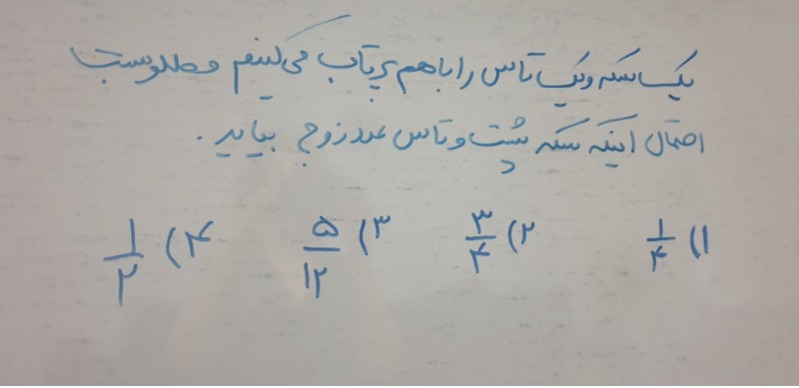 یک سکه و یک تاس را با هم پرتاب می‌کنیم مطلوبست
احتمال اینکه سکه پشت و تاس عدد زوج بیاید.
۱) ۱/۴ ۲) ۳/۴ ۳) ۵/۱۲ ۴) ۱/۲